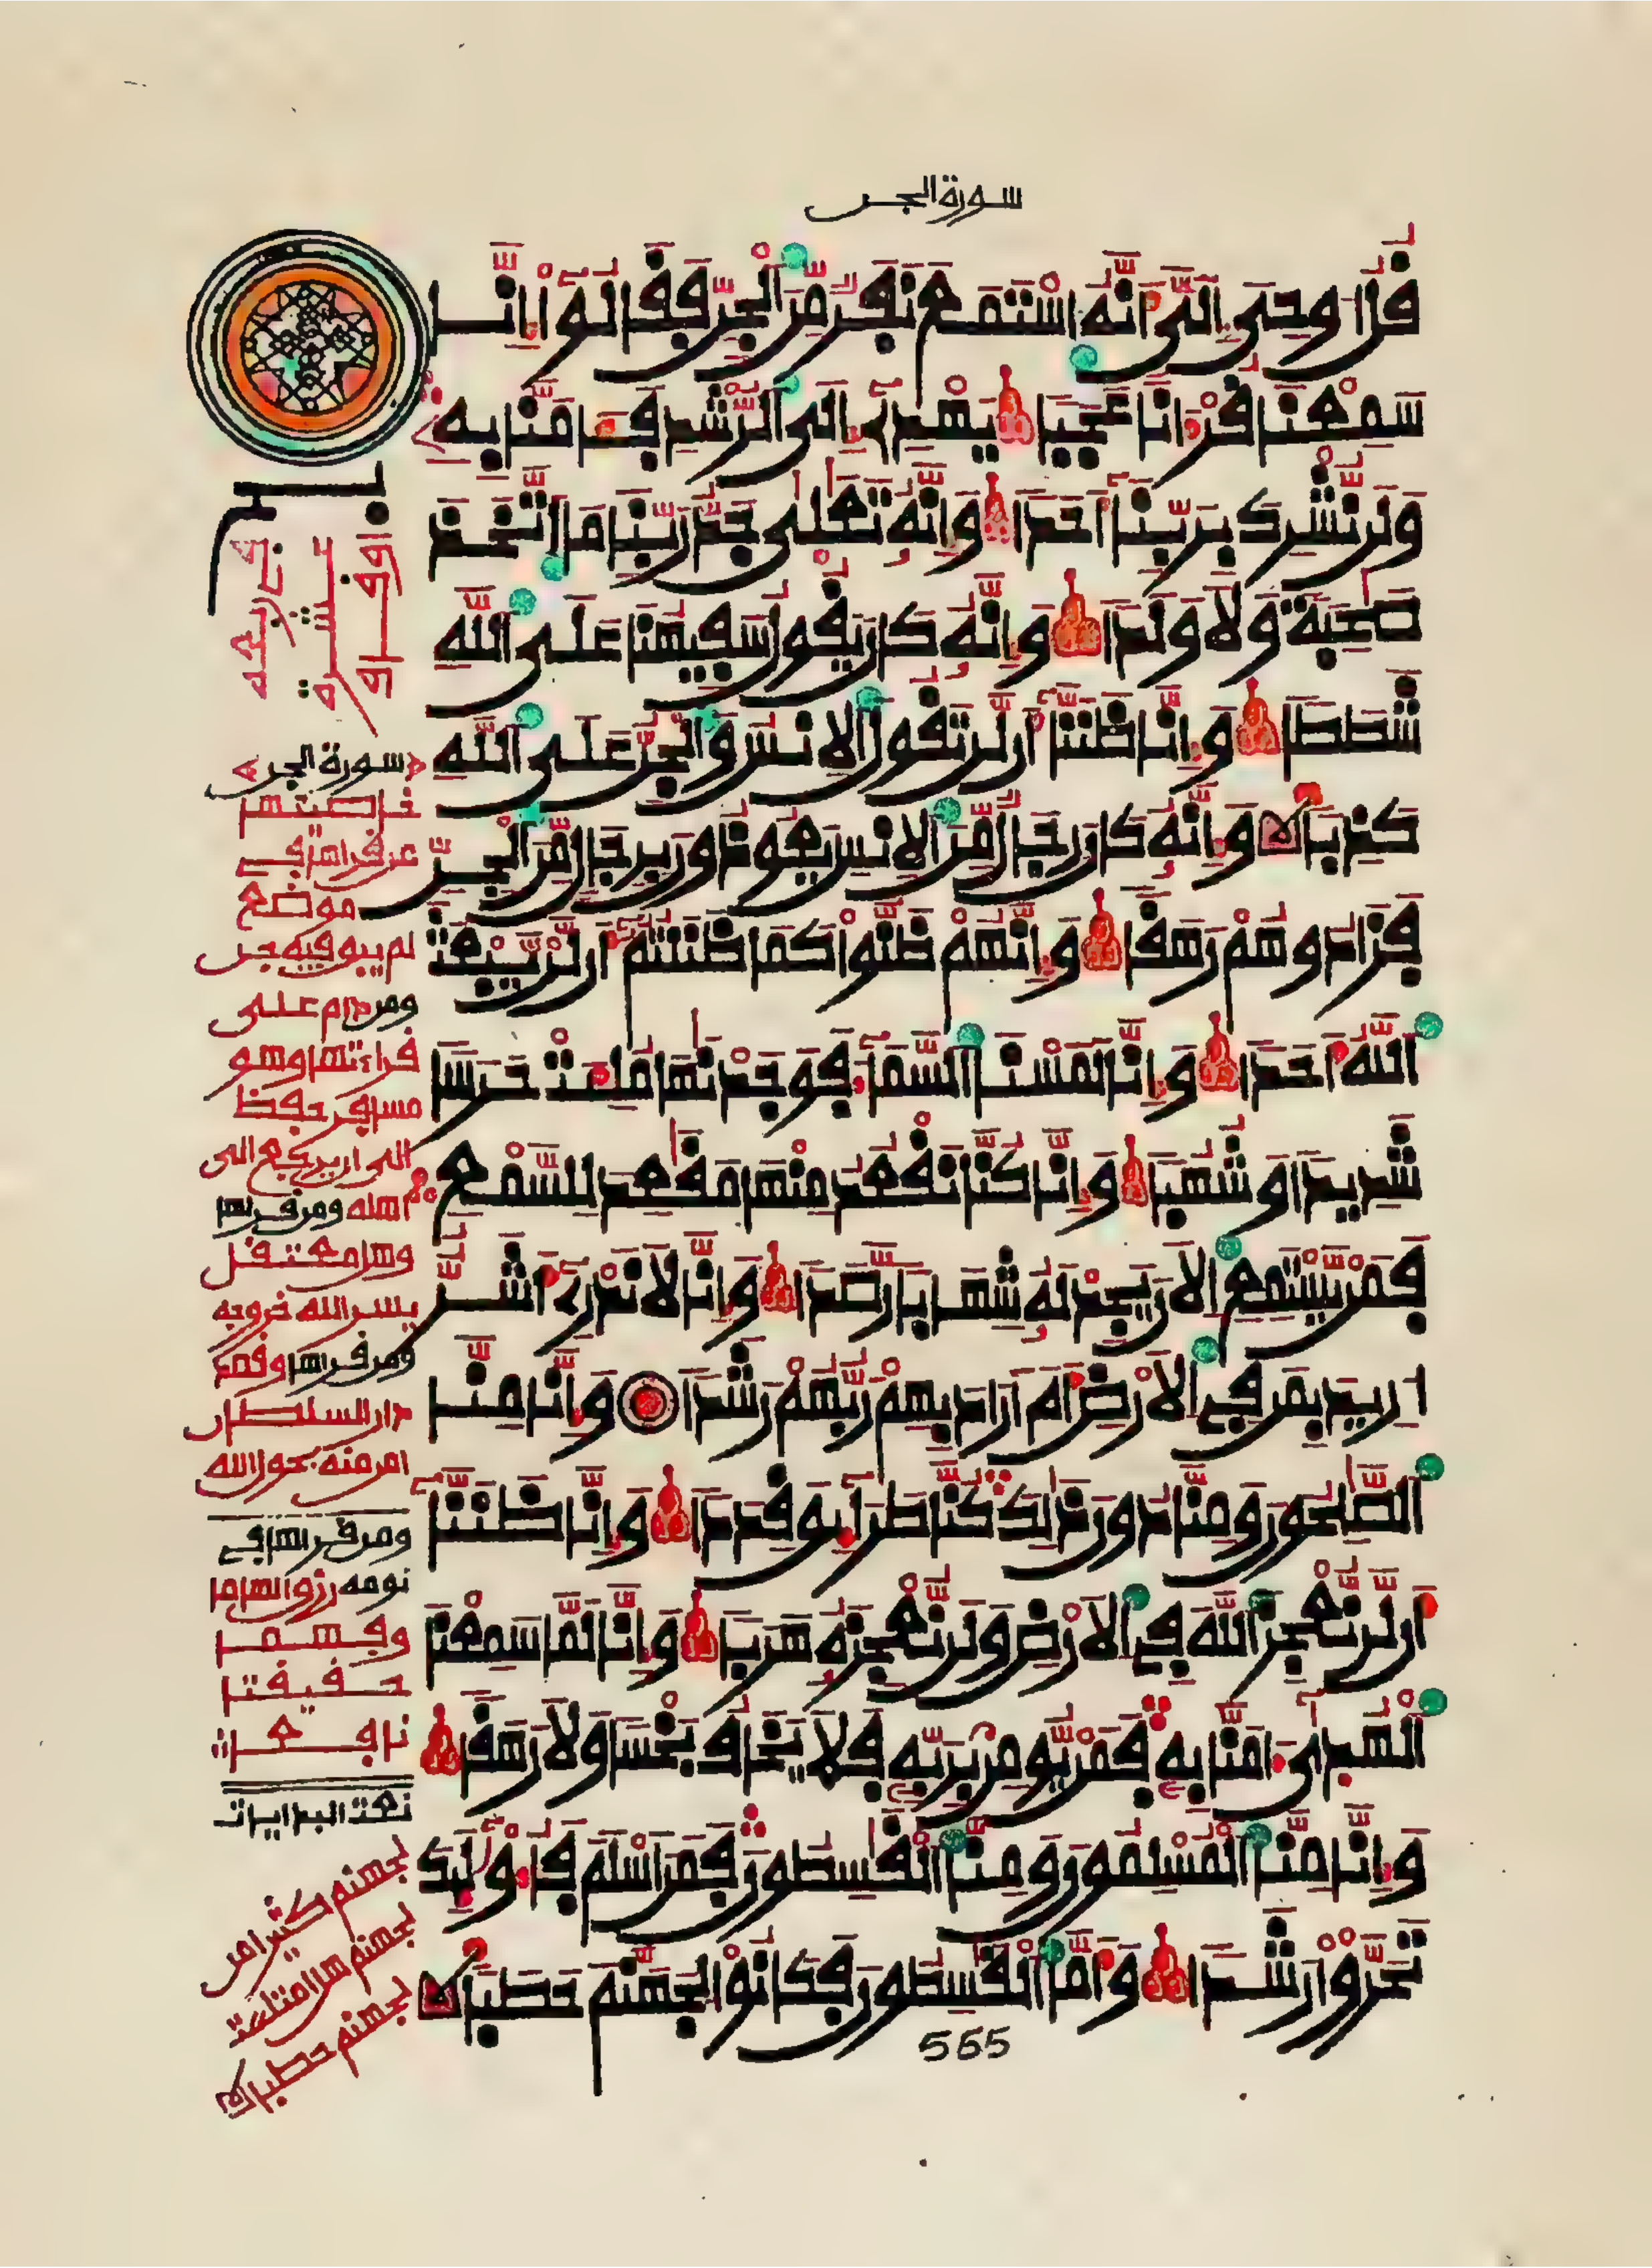 سورة الجن
قل اوحى الى انه استمع نفر من الجن فقالوا انا
سمعنا قرءانا عجبا يهدى الى الرشد فـامنا به
ولن نشرك بربنا احدا وانه تعلى جد ربنا ما اتخذ
صحبة ولا ولدا وانه كان يقول سفيهنا على الله
شططا وانا ظننا ان لن تقول الانس والجن على الله
كذبا وانه كان رجال من الانس يعوذون برجال من الجن
فزادوهم رهقا وانهم ظنوا كما ظننتم ان لن يبعث
الله احدا وانا لمسنا السما فوجدنها ملئت حرسا
شديدا وشهبا وانا كنا نقعد منها مقعد للسمع
فمن يستمع الان يجد له شهابا رصدا وانا لا ندرى اشر
اريد بمن فى الارض ام اراد بهم ربهم رشدا وانا منا
الصلحون ومنا دون ذلك كنا طرايق قددا وانا ظننا
ان لن نعجز الله فى الارض ولن نعجزه هربا وانا لما سمعنا
الهدى ءامنا به فمن يومن بربه فلا يخاف بخسا ولا رهقا
وانا منا المسلمون ومنا القسطون فمن اسلم فاولئك
تحروا رشدا واما القسطون فكانوا لجهنم حطبا
بسم
سورة الجن
خاصتها
من قراها فى
موضع
لم يبق فيه جن
ومن دام على
قراءتها وهو
مسافر حفظ
الى ان يرجع الى
اهله ومن قراها
وهو معتقل
يسر الله خروجه
ومن قراها وقصد
دار السلطان
امن منه بحول الله
ومن قراها فى
نومه رزق الهاما
وفهما
حقيقتا
نافعا
لجهنم كثيرا من
لجهنم هل امتلئت
لجهنم حطبا
565